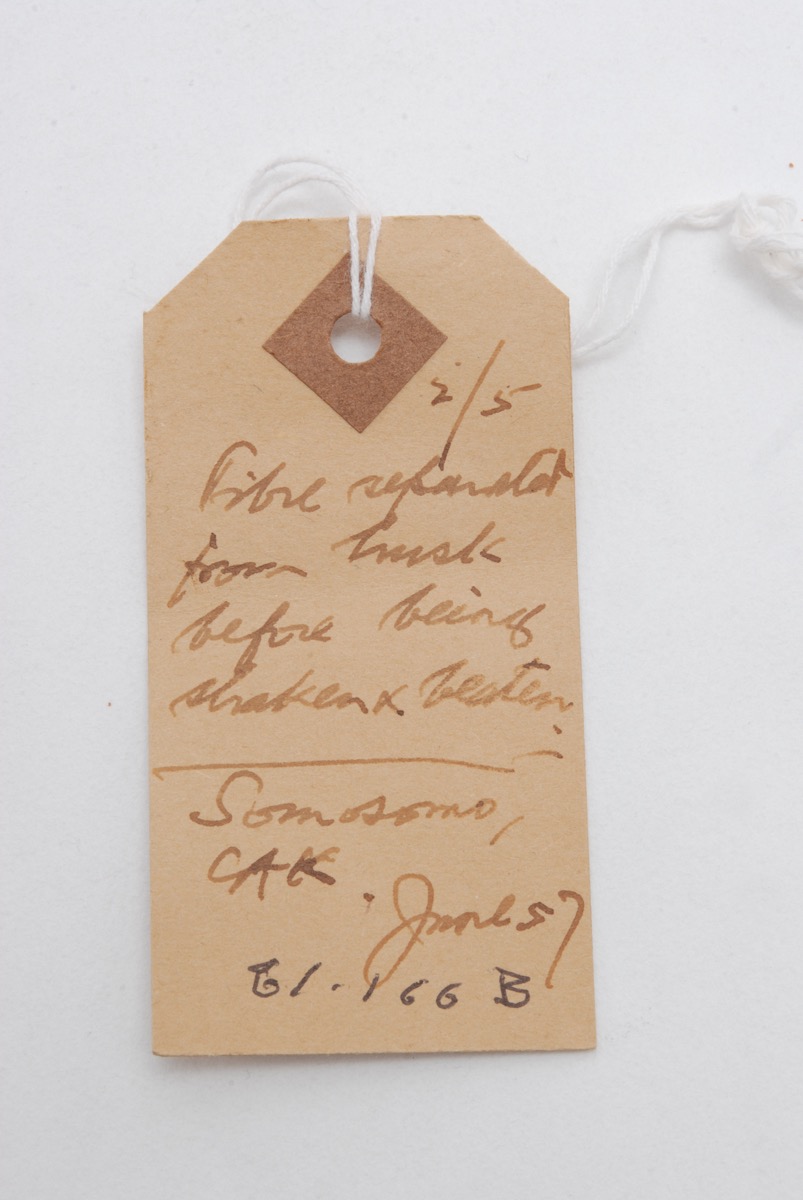 2/5
Fibre separated
from husk
before being
shaken & beaten
Somosomo,
CAK.
June 57
61.166 B